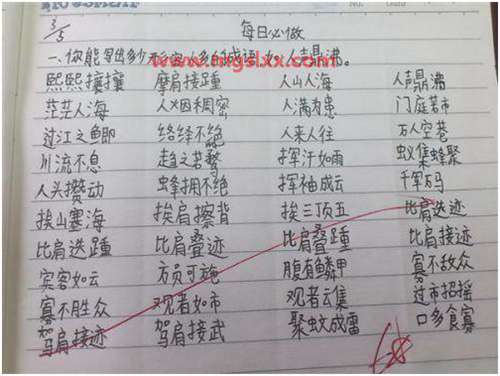 3/5 每日必做
一、你能写出多少形容人多的成语 如：人声鼎沸。
www.mgslxx.com
熙熙攘攘 摩肩接踵 人山人海 人声鼎沸
茫茫人海 人烟稠密 人满为患 门庭若市
过江之鲫 络绎不绝 人来人往 万人空巷
川流不息 趋之若鹜 挥汗如雨 蚁集蜂聚
人头攒动 蜂拥不绝 挥袖成云 千军万马
挨山塞海 挨肩擦背 挨三顶五 比肩迭迹
比肩迭踵 比肩叠迹 比肩叠踵 比肩接迹
宾客如云 方员可施 腹有鳞甲 寡不敌众
寡不胜众 观者如市 观者云集 过市招摇
驾肩接迹 驾肩接武 聚蚊成雷 口多食寡